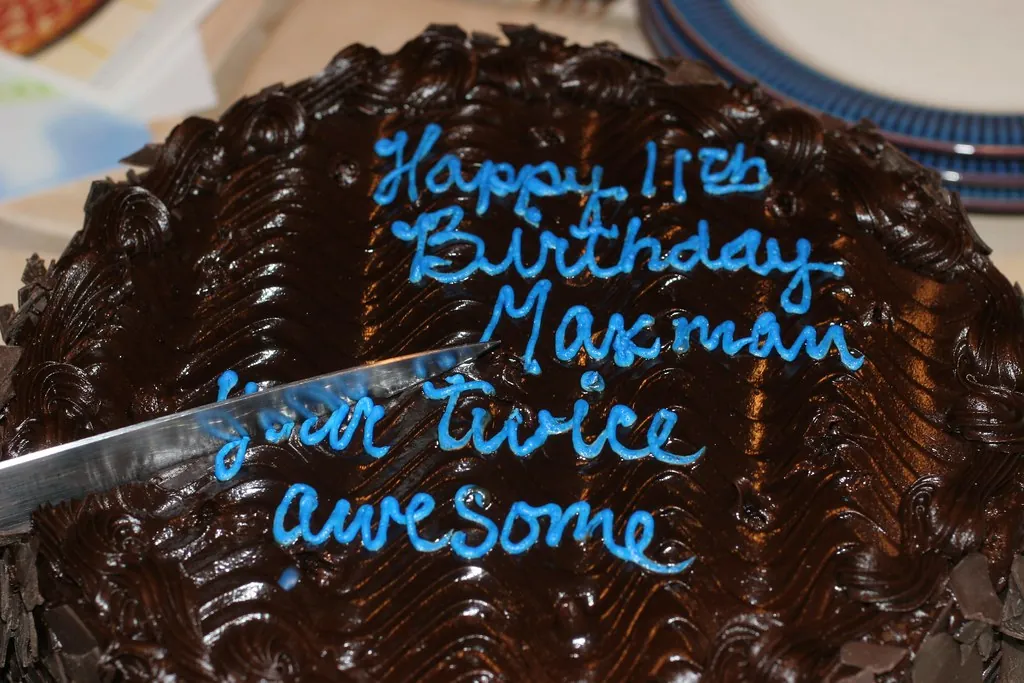 Happy 11th
Birthday
Maxman
your twice
awesome